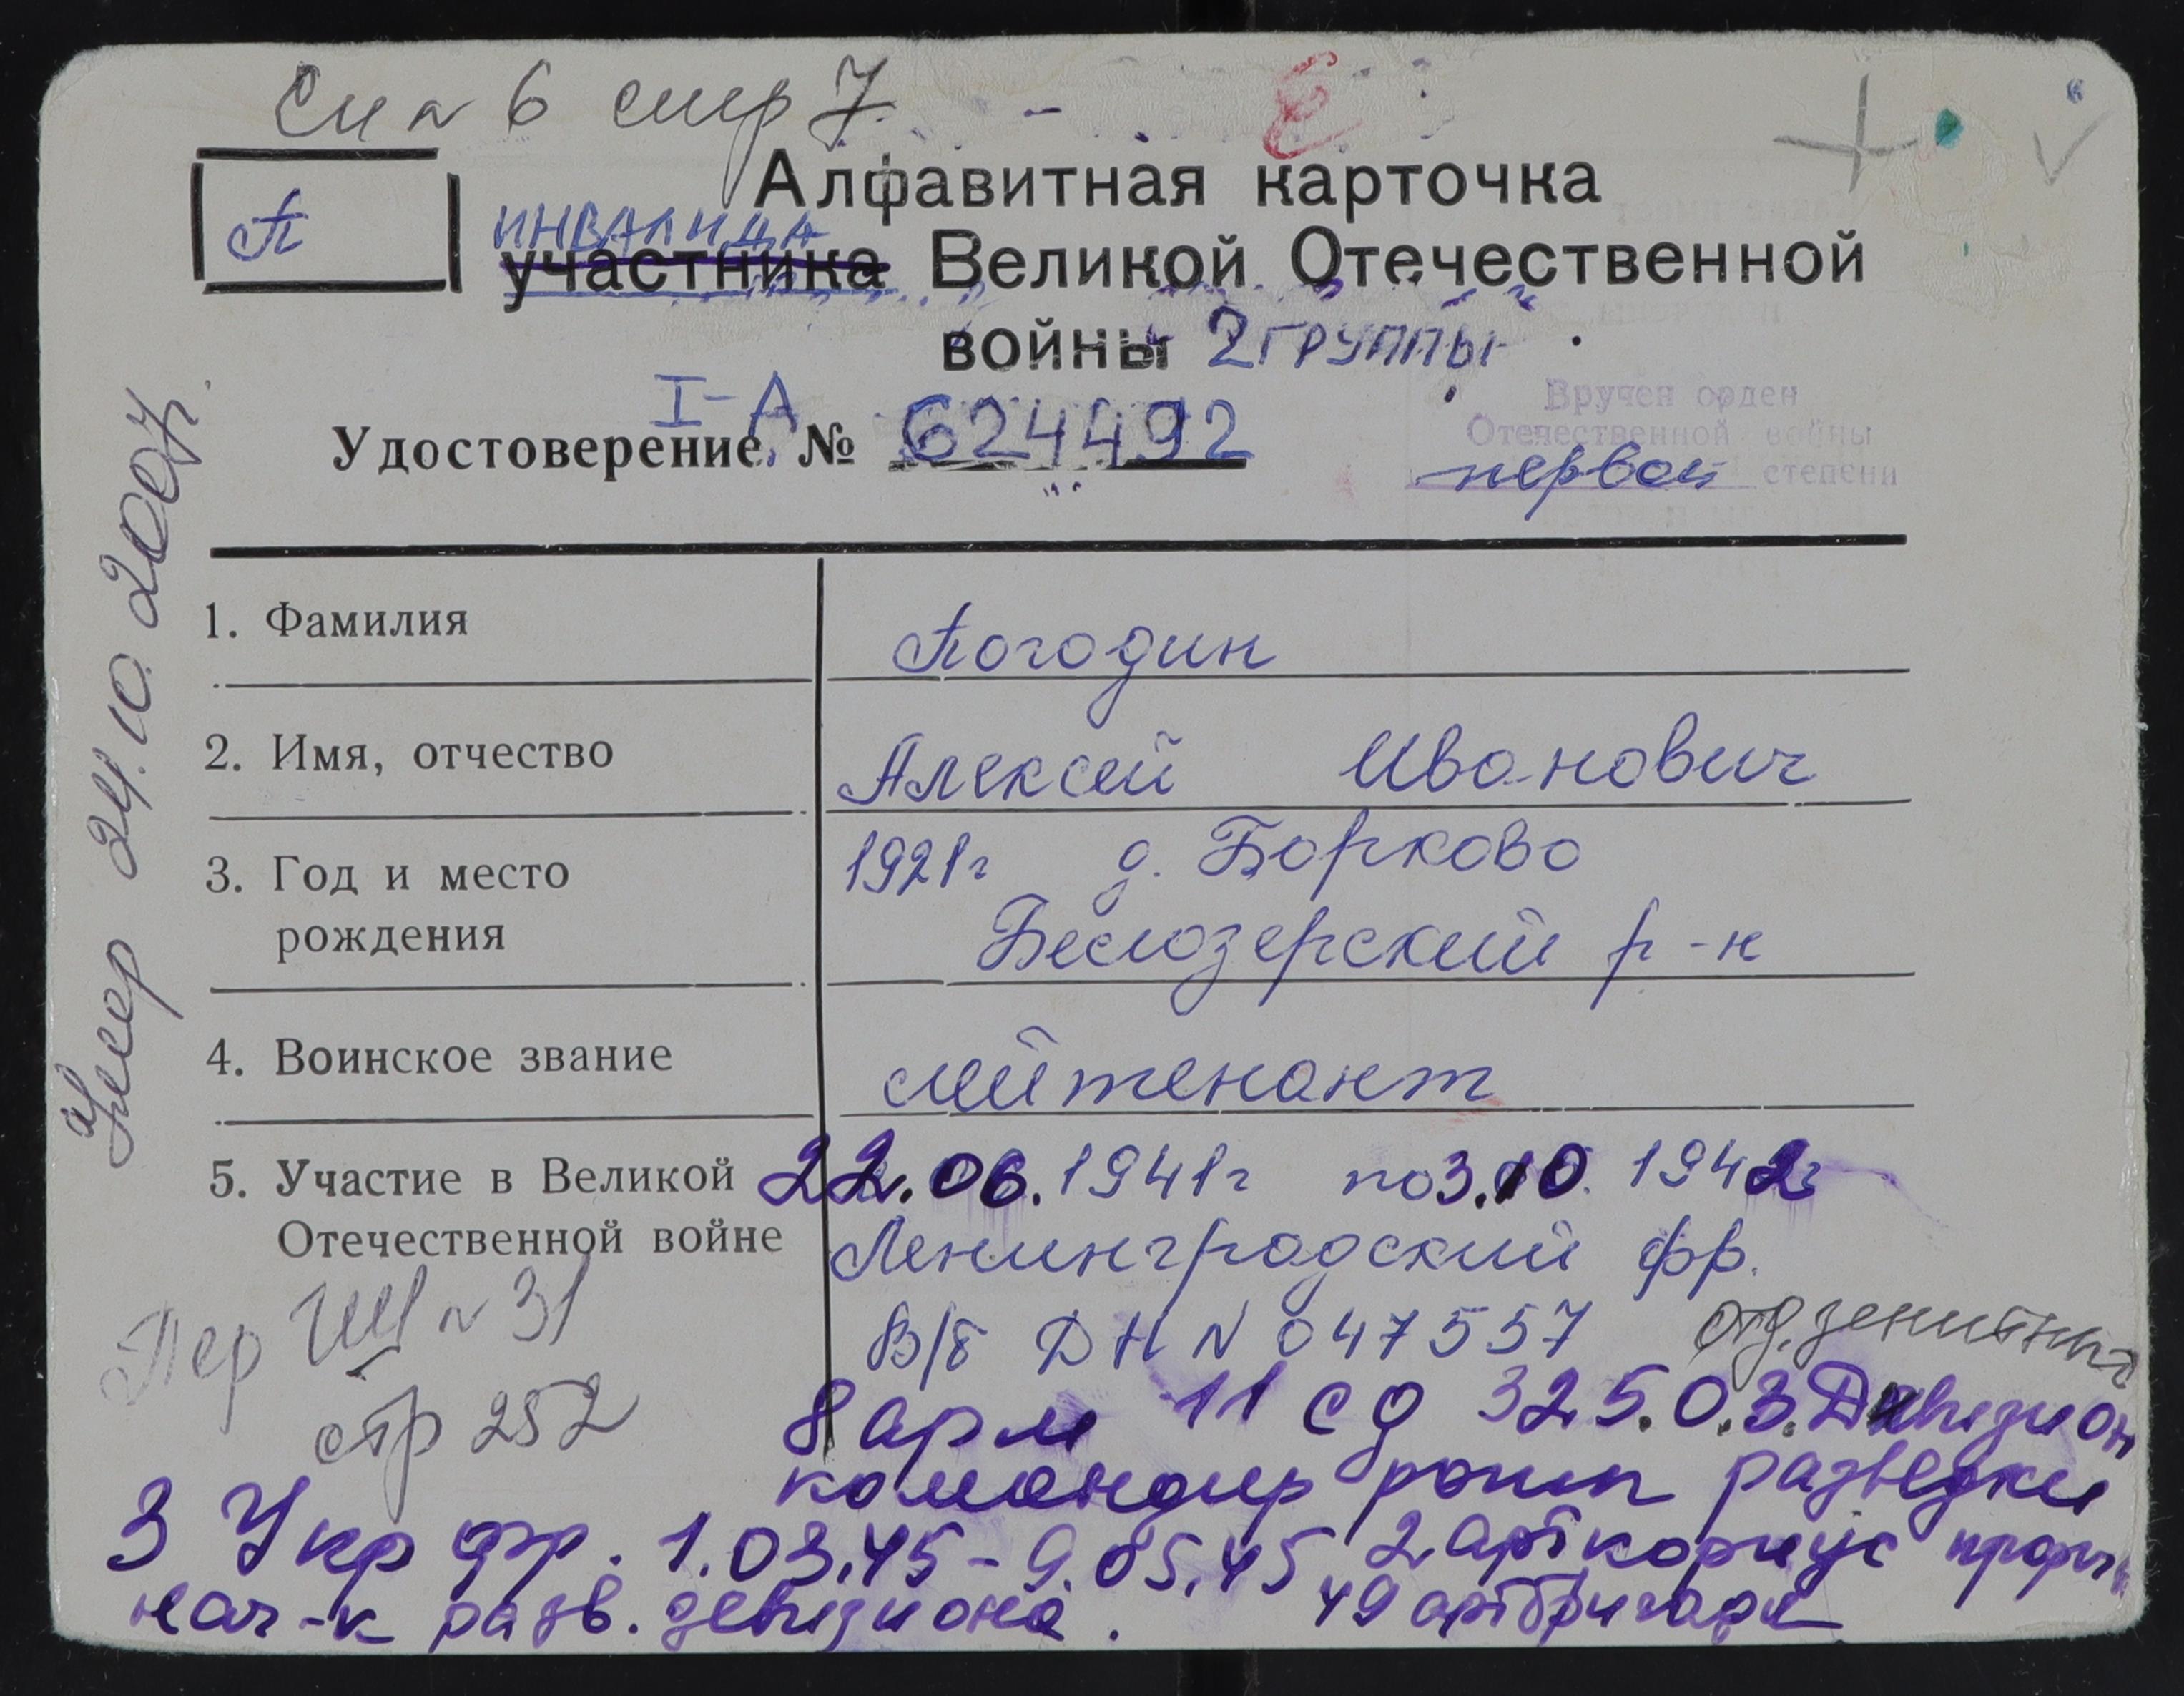 Сп № 6 стр 7
П
Алфавитная карточка
ИНВАЛИДА
участника Великой Отечественной
войны 2 ГРУППЫ
I-А
Удостоверение № 624492
Вручен орден
Отечественной войны
первой степени
Умер 24.10.2007г.
1. Фамилия Погодин
2. Имя, отчество Алексей Иванович
3. Год и место рождения 1921г д. Борково
Белозерский р-н
4. Воинское звание лейтенант
5. Участие в Великой Отечественной войне 22.06.1941г по 3.10.1942г
Ленинградский фр.
В/б ДН N 047557 отд. зенитный
Пер № 31
стр 252
8 арм 11 сд 325.О.З.Дивизион
командир роты разведки
3 Укр фр. 1.03.45-9.05.45 2 арткорпус
нач-к разв. дивизиона. 49 артбригада